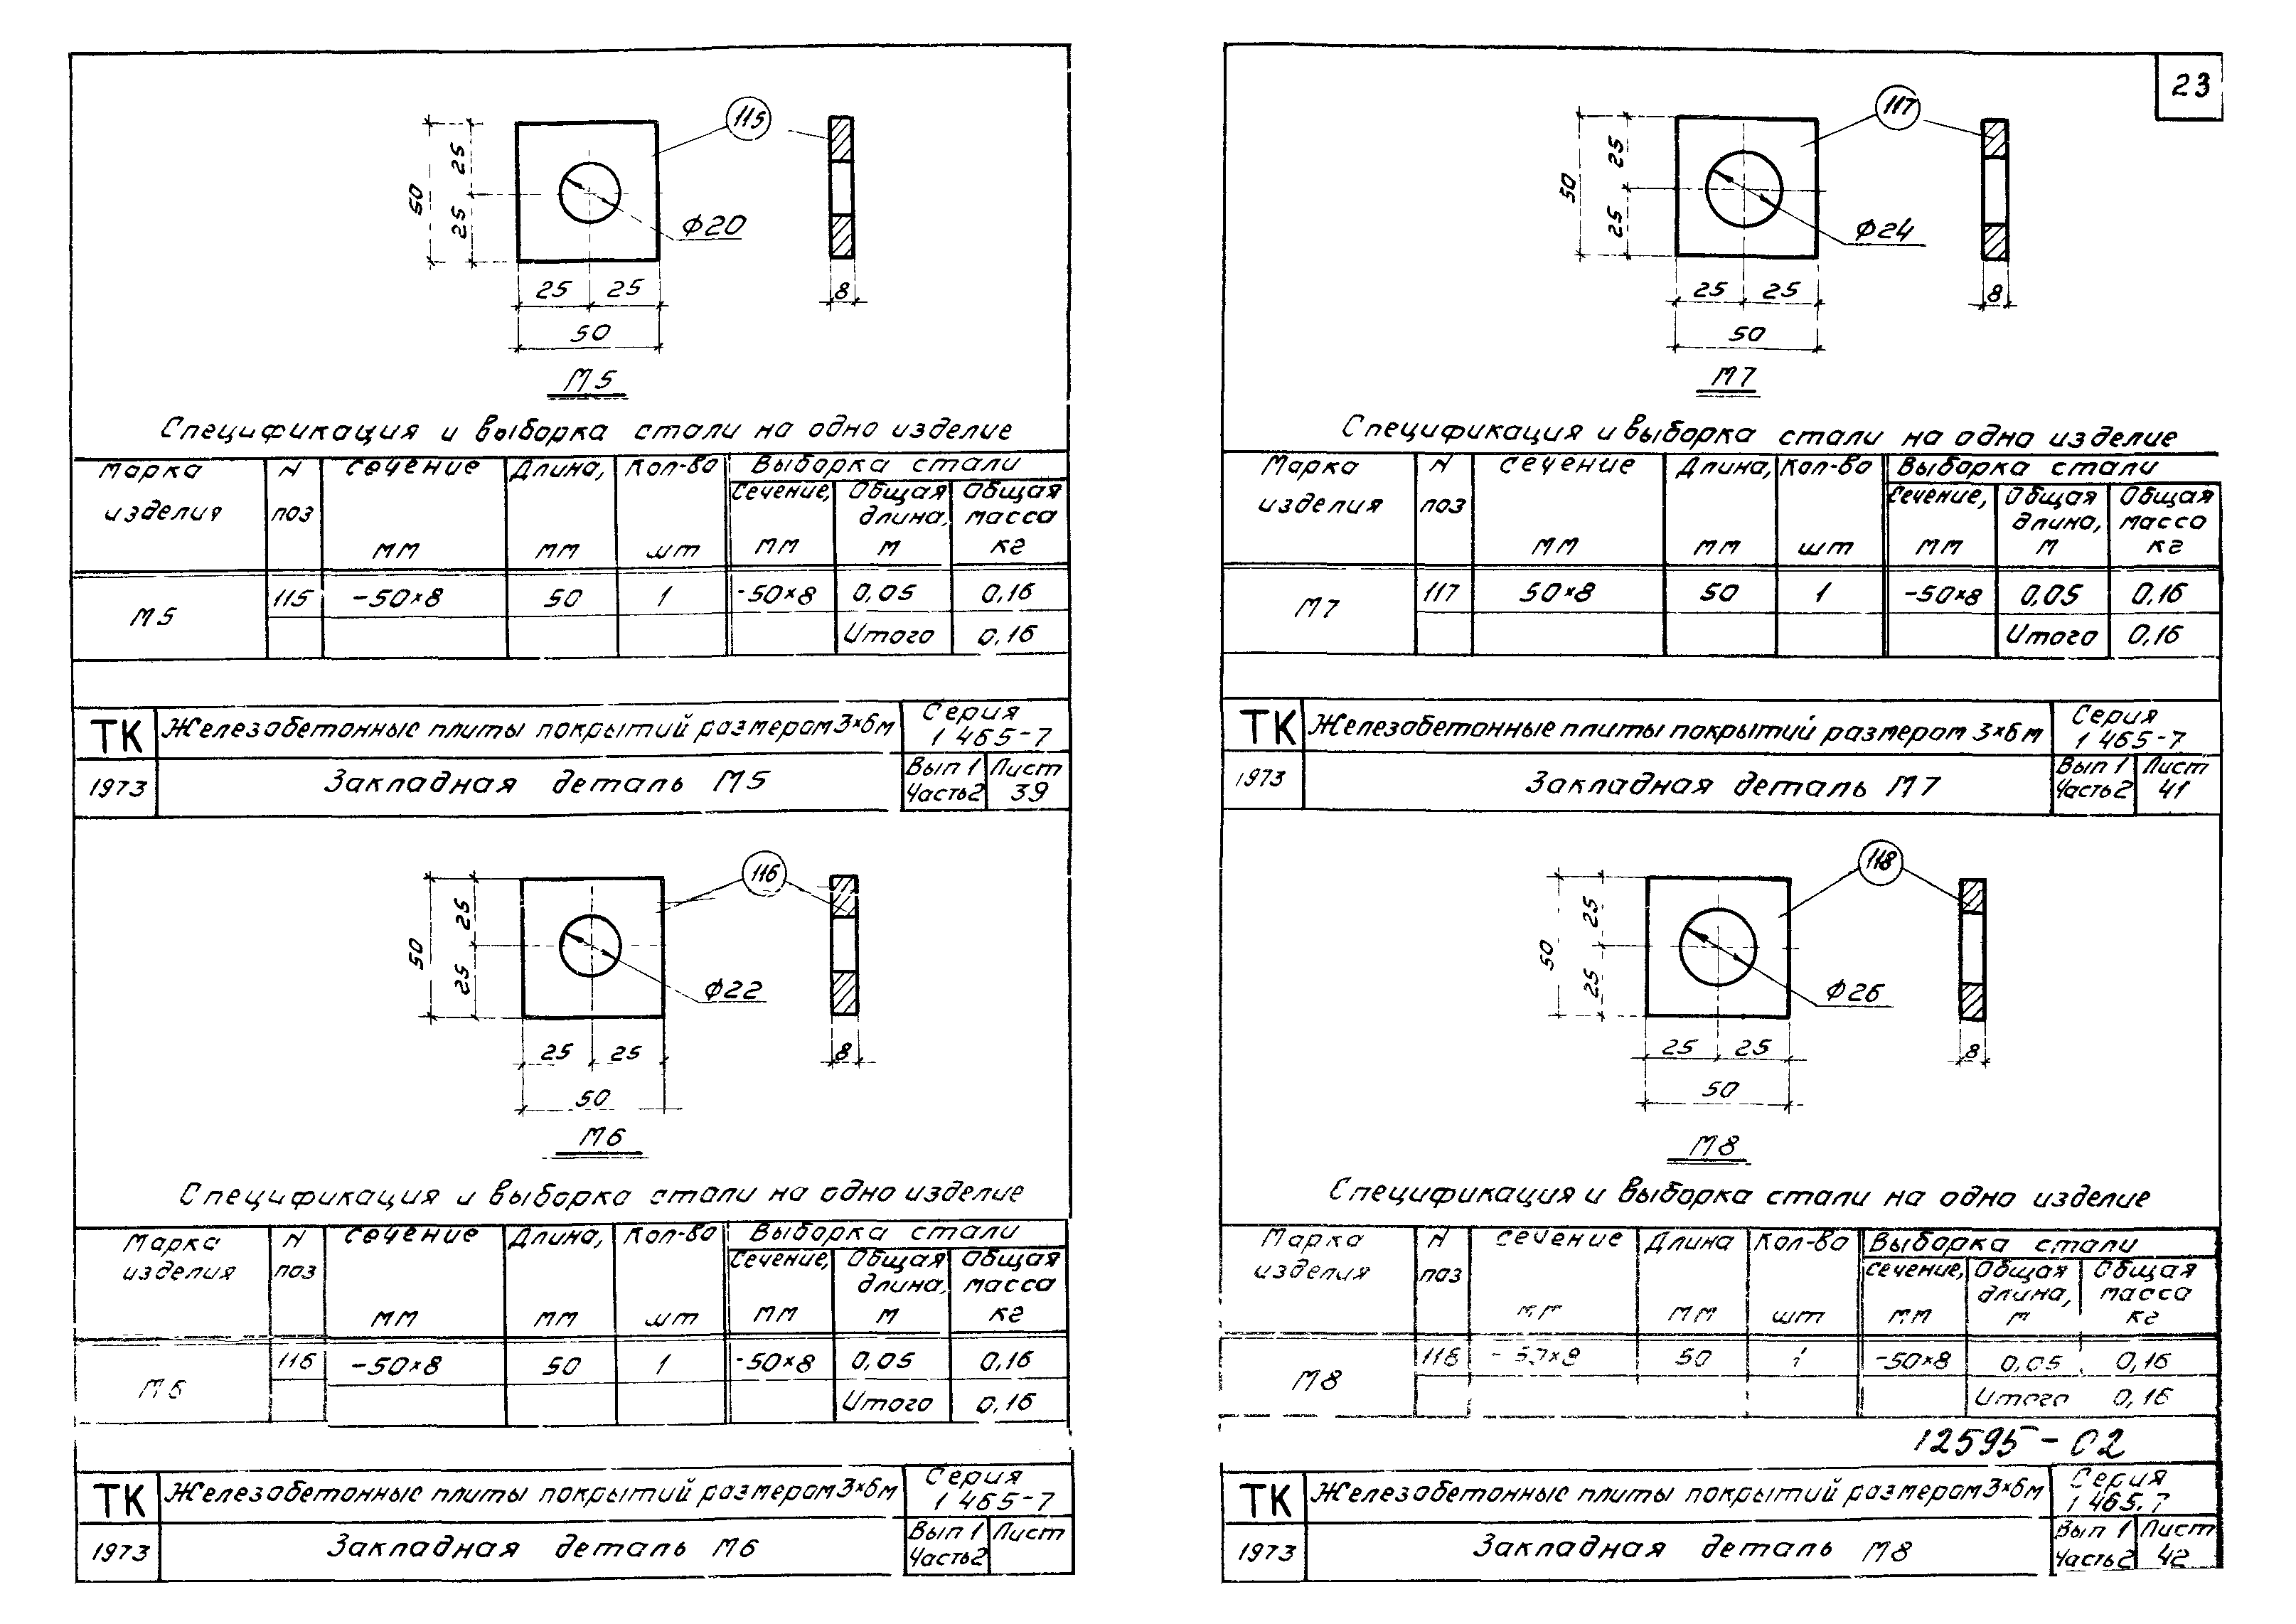 23
115
25
50
25
Ф20
25 25
8
50
М5
Спецификация и выборка стали на одно изделие
Марка изделия
N поз
Сечение мм
Длина, мм
Кол-во шт
Выборка стали
Сечение, мм
Общая длина, м
Общая масса кг
М5 115 -50×8 50 1 -50×8 0,05 0,16
Итого 0,16
ТК Железобетонные плиты покрытий размером 3×6м Серия 1 465-7
1973 Закладная деталь М5 Вып 1 Часть 2 Лист 39
116
25
50
25
Ф22
25 25
8
50
М6
Спецификация и выборка стали на одно изделие
Марка изделия
N поз
Сечение мм
Длина, мм
Кол-во шт
Выборка стали
Сечение, мм
Общая длина, м
Общая масса кг
М6 116 -50×8 50 1 -50×8 0,05 0,16
Итого 0,16
ТК Железобетонные плиты покрытий размером 3×6м Серия 1 465-7
1973 Закладная деталь М6 Вып 1 Часть 2 Лист
117
25
50
25
Ф24
25 25
8
50
М7
Спецификация и выборка стали на одно изделие
Марка изделия
N поз
Сечение мм
Длина, мм
Кол-во шт
Выборка стали
Сечение, мм
Общая длина, м
Общая масса кг
М7 117 50×8 50 1 -50×8 0,05 0,16
Итого 0,16
ТК Железобетонные плиты покрытий размером 3×6м Серия 1 465-7
1973 Закладная деталь М7 Вып 1 Часть 2 Лист 41
118
25
50
25
Ф26
25 25
8
50
М8
Спецификация и выборка стали на одно изделие
Марка изделия
N поз
Сечение мм
Длина мм
Кол-во шт
Выборка стали
Сечение, мм
Общая длина, м
Общая масса кг
М8 118 -50×8 50 1 -50×8 0,05 0,16
Итого 0,16
12595-02
ТК Железобетонные плиты покрытий размером 3×6м Серия 1 465.7
1973 Закладная деталь М8 Вып 1 Часть 2 Лист 42